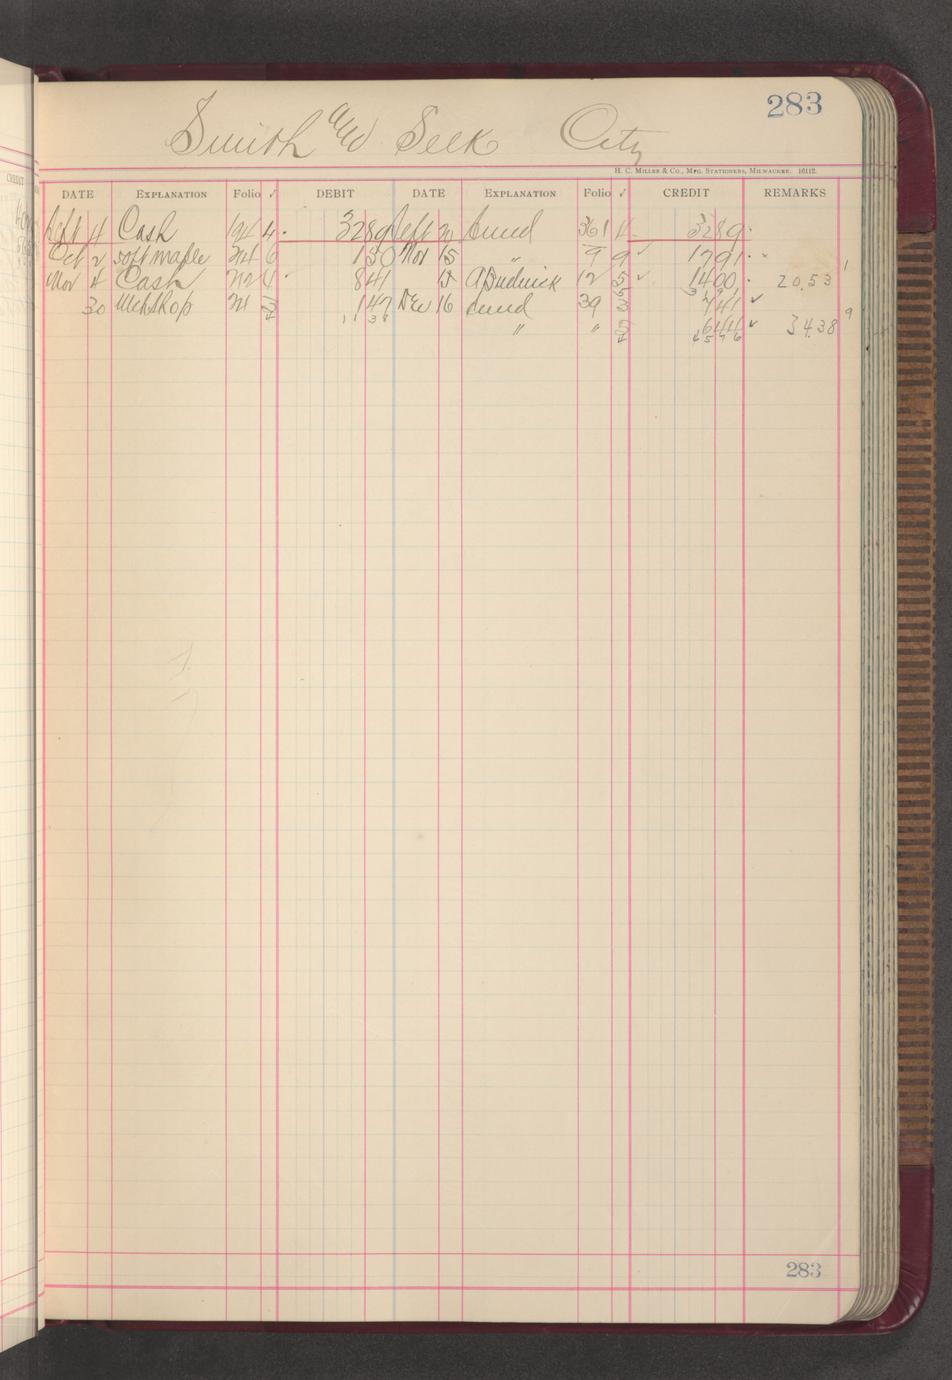 283
Smith and Selk City
H. C. Miller & Co., Mfg. Stationers, Milwaukee. 16112.
DATE EXPLANATION Folio ✓ DEBIT DATE EXPLANATION Folio ✓ CREDIT REMARKS
Sept 4 Cash 194 4 3289 Sept 20 Lund 361 4 3289
Oct 2 soft maple 6 130 Nov 15 " 9 9 1791
Nov 4 Cash 4 841 15 12 5 ✓ 1400 20.53
30 3 147 Dec 16 Lund 39 3 ✓
1138 " " ✓ 34.38
4576
283